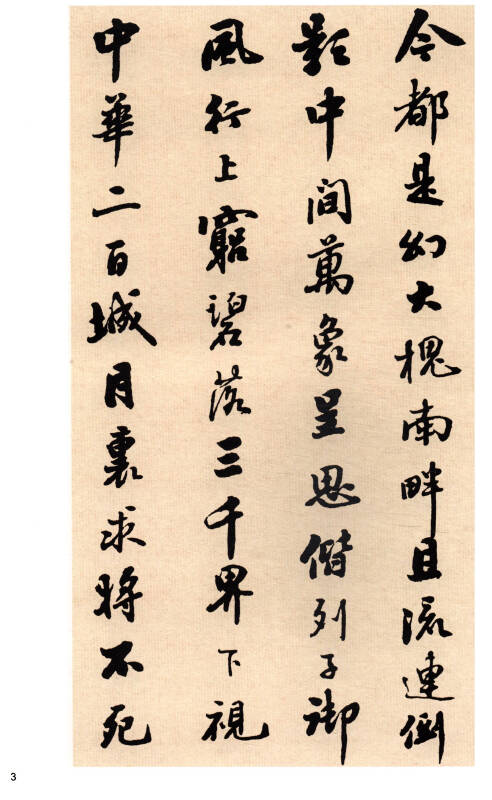 今都是幻大槐南畔且流連倒
影中間萬象呈思偕列子御
風行上窮碧落三千界下視
中華二百城月裏求將不死
3